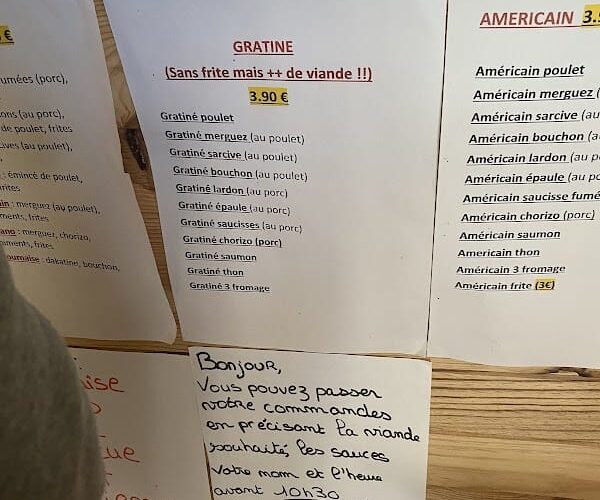 €
(porc),
(au porc),
de poulet, frites
(au poulet),
: émincé de poulet,
: merguez (au poulet),
: merguez, chorizo,
: dakatine, bouchon,
GRATINE
(Sans frite mais ++ de viande !!)
3.90 €
Gratiné poulet
Gratiné merguez (au poulet)
Gratiné sarcive (au poulet)
Gratiné bouchon (au poulet)
Gratiné lardon (au porc)
Gratiné épaule (au porc)
Gratiné saucisses (au porc)
Gratiné chorizo (porc)
Gratiné saumon
Gratiné thon
Gratiné 3 fromage
AMERICAIN
Américain poulet
Américain merguez (
Américain sarcive (au
Américain bouchon (au
Américain lardon (au po
Américain épaule (au po
Américain saucisse fumé
Américain chorizo (porc)
Américain saumon
Americain thon
Américain 3 fromage
Américain frite (3€)
Bonjour,
Vous pouvez passer
votre commandes
en précisant la viande
souhaité, les sauces
votre nom et l'heure
avant 10h30